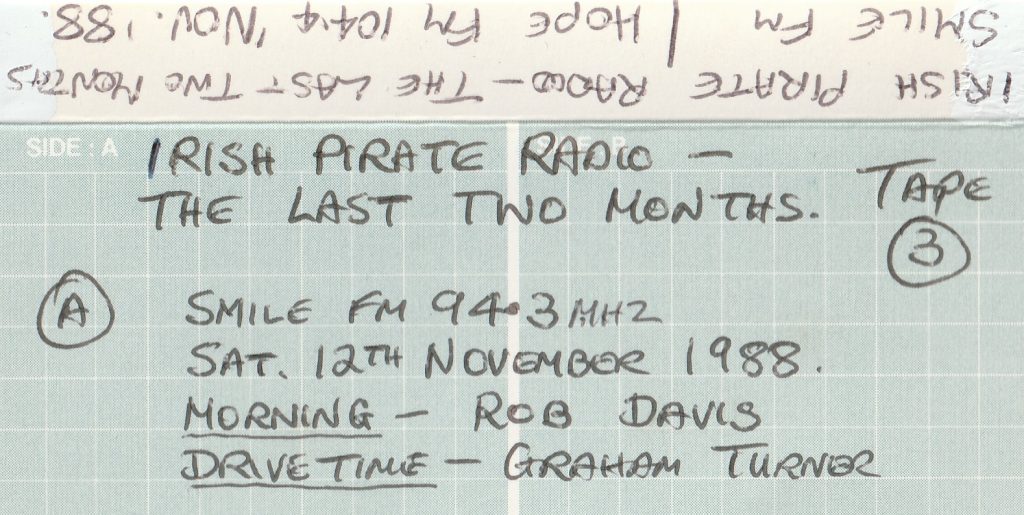 IRISH PIRATE RADIO - THE LAST TWO MONTHS
SMILE FM / HOPE FM 104.4, NOV. '88.
SIDE : A
IRISH PIRATE RADIO -
THE LAST TWO MONTHS. TAPE
3
A SMILE FM 94.3 MHZ
SAT. 12TH NOVEMBER 1988.
MORNING - ROB DAVIS
DRIVETIME - GRAHAM TURNER